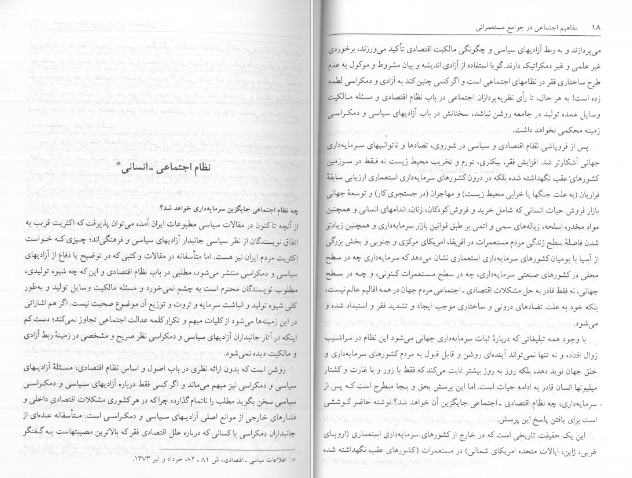 ۱۸ مفاهیم اجتماعی در جوامع مستعمراتی
می‌پردازند و به ربط آزادیهای سیاسی و چگونگی مالکیت اقتصادی تأکید می‌ورزند، برخوردی
غیر علمی و غیر دمکراتیک دارند. گویا استفاده از آزادی اندیشه و بیان مشروط و موکول به عدم
طرح ساختاری فقر در نظامهای اجتماعی است و اگر کسی چنین کند به آزادی و دمکراسی لطمه
زده است! به هر حال، تا رأی نظریه‌پردازان اجتماعی در باب نظام اقتصادی و مسئله مالکیت
وسایل عمده تولید در جامعه روشن نباشد، سخنانش در باب آزادیهای سیاسی و دمکراسی
زمینه محکمی نخواهد داشت.
پس از فروپاشی نظام اقتصادی و سیاسی در شوروی، تضادها و ناتوانیهای سرمایه‌داری
جهانی آشکارتر شد. افزایش فقر، بیکاری، تورم و تخریب محیط زیست نه فقط در سرزمین
کشورهای عقب نگهداشته شده بلکه در درون کشورهای سرمایه‌داری استعماری ارزیابی سابقهٔ
فراریان (به علت جنگها یا خرابی محیط زیست) و مهاجران (در جستجوی کار) و توسعهٔ جهانی
بازار فروش حیات انسانی که شامل خرید و فروش کودکان، زنان، اندامهای انسانی و همچنین
مواد مخدر، اسلحه، زباله‌های سمی و اتمی بر طبق قوانین بازار سرمایه‌داری و همچنین زیادتر
شدن فاصلهٔ سطح زندگی مردم مستعمرات در افریقا، امریکای مرکزی و جنوبی و بخش بزرگی
از آسیا با بومیان کشورهای سرمایه‌داری استعماری نشان می‌دهد که سرمایه‌داری چه در سطح
محلی در کشورهای صنعتی سرمایه‌داری، چه در سطح مستعمرات کنونی، و چه در سطح
جهانی، نه فقط قادر به حل مشکلات اقتصادی ـ اجتماعی مردم جهان در همه اقالیم عالم نیست،
بلکه خود به علت تضادهای درونی و ساختاری موجب ایجاد و تشدید فقر و استبداد شده و
می‌شود.
با وجود همه تبلیغاتی که دربارهٔ ثبات سرمایه‌داری جهانی می‌شود این نظام در سراشیب
زوال افتاده و نه تنها نمی‌تواند آینده‌ای روشن و قابل قبول به مردم کشورهای سرمایه‌داری و
خلق جهان نوید دهد، بلکه روز به روز بیشتر ثابت می‌کند که فقط با زور و با غارت و کشتار
میلیونها انسان قادر به ادامه حیات است. اما این پرسش بحق و بجا مطرح است که پس از
سرمایه‌داری، چه نظام اقتصادی ـ اجتماعی جایگزین آن خواهد شد؟ نوشته حاضر کوششی
برای یافتن پاسخ این پرسش است.
این یک حقیقت تاریخی است که در خارج از کشورهای سرمایه‌داری استعماری (اروپای
غربی، ژاپن، ایالات متحده امریکای شمالی) در مستعمرات (کشورهای عقب نگهداشته شده
نظام اجتماعی ـ انسانی*
چه نظام اجتماعی جایگزین سرمایه‌داری خواهد شد؟
از آنچه تاکنون در مقالات سیاسی مطبوعات ایران آمده می‌توان پذیرفت که اکثریت قریب به
اتفاق نویسندگان از نظر سیاسی جانبدار آزادیهای سیاسی و فرهنگی‌اند؛ چیزی که خواست
اکثریت مردم ایران نیز هست. اما متأسفانه در مقالات و کتابی که در توضیح یا دفاع از آزادیهای
سیاسی و دمکراسی منتشر می‌شود، مطلبی در باب نظام اقتصادی و این که چه شیوه تولیدی،
مطلوب نویسندگان محترم است به چشم نمی‌خورد و مسئله مالکیت وسایل تولید و به‌طور
کلی شیوه تولید و انباشت سرمایه و ثروت و توزیع آن موضوع صحبت نیست. اگر هم اشاراتی
در این زمینه‌ها می‌شود از کلیات مبهم و تکرار کلمه عدالت اجتماعی تجاوز نمی‌کند؛ دست کم
اینکه در آثار جانبداران آزادیهای سیاسی و دمکراسی نظر صریح و مشخصی در زمینهٔ ربط آزادی
و مالکیت دیده نمی‌شود.
روشن است که بدون ارائه نظری در باب اصول و اساس نظام اقتصادی، مسئلهٔ آزادیهای
سیاسی و دمکراسی نیز مبهم می‌ماند و اگر کسی فقط درباره آزادیهای سیاسی و دمکراسی
سخن بگوید مطلب را ناتمام گذارده چرا که در هر کشوری مشکلات اقتصادی داخلی و
فشارهای خارجی از موانع اصلی آزادیهای سیاسی و دمکراسی است. متأسفانه عده‌ای از
جانبداران دمکراسی با کسانی که درباره علل اقتصادی فقر که بالاترین مصیبتهاست به گفتگو
*. اطلاعات سیاسی ـ اقتصادی، ش ۸۱ ـ ۸۲، خرداد و تیر ۱۳۷۳.